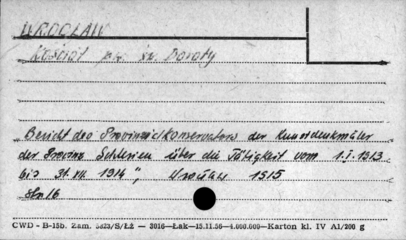 WROCŁAW
Kościół p.w. św. Doroty
Bericht des Provinzialkonservators der Kunstdenkmäler
der Provinz Schlesien über die Tätigkeit vom 1.I.1913
bis 31.XII. 1914", Wrocław 1915
Str. 16
CWD - B-15b. Zam. 3823/S/Łż — 3016—Łak—15.11.56—4.000.000—Karton kl. IV A1/200 g